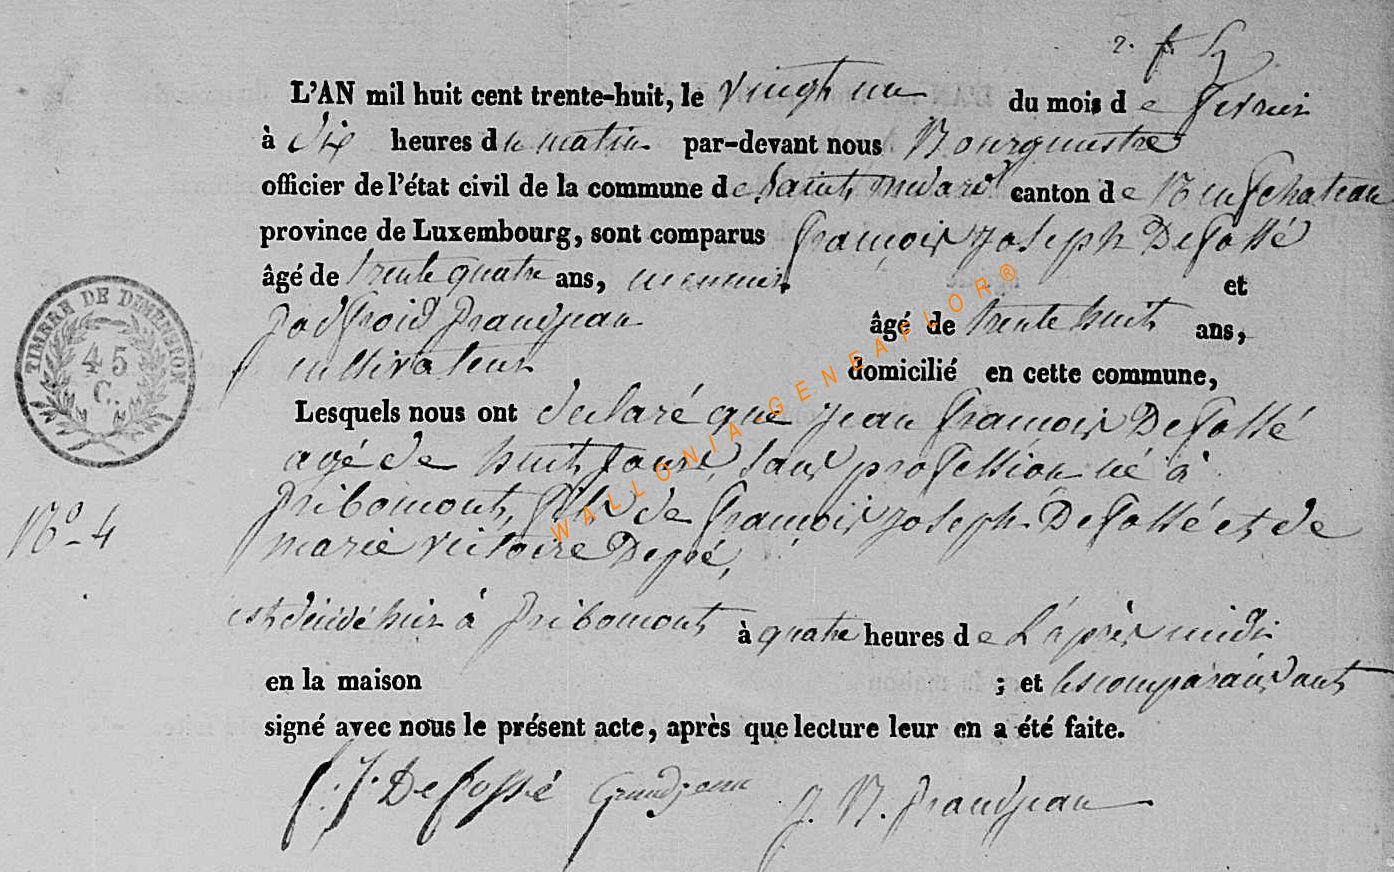 2. f.
L'AN mil huit cent trente-huit, le vingt un du mois de fevrier
à dix heures du matin par-devant nous Bourguemestre
officier de l'état civil de la commune de Saint medard canton de Neufchateau
province de Luxembourg, sont comparus françois joseph Defossé
âgé de trente quatre ans, meunier et
godfroid grandjean âgé de trente huit ans,
cultivateur domicilié en cette commune,
Lesquels nous ont declaré que jean françois Defossé
agé de huit jours, sans profession né à
gribomont, fils de françois joseph Defossé et de
marie victoire Depré,
est décidé hier à gribomont à quatre heures de l'après midi
en la maison ; et les comparans ont
signé avec nous le présent acte, après que lecture leur en a été faite.
f. j. Defossé Grandjean J. N. grandjean
TIMBRE DE DIMENSION
45
C.
N° 4
WALLONIA GENEAFLOR®